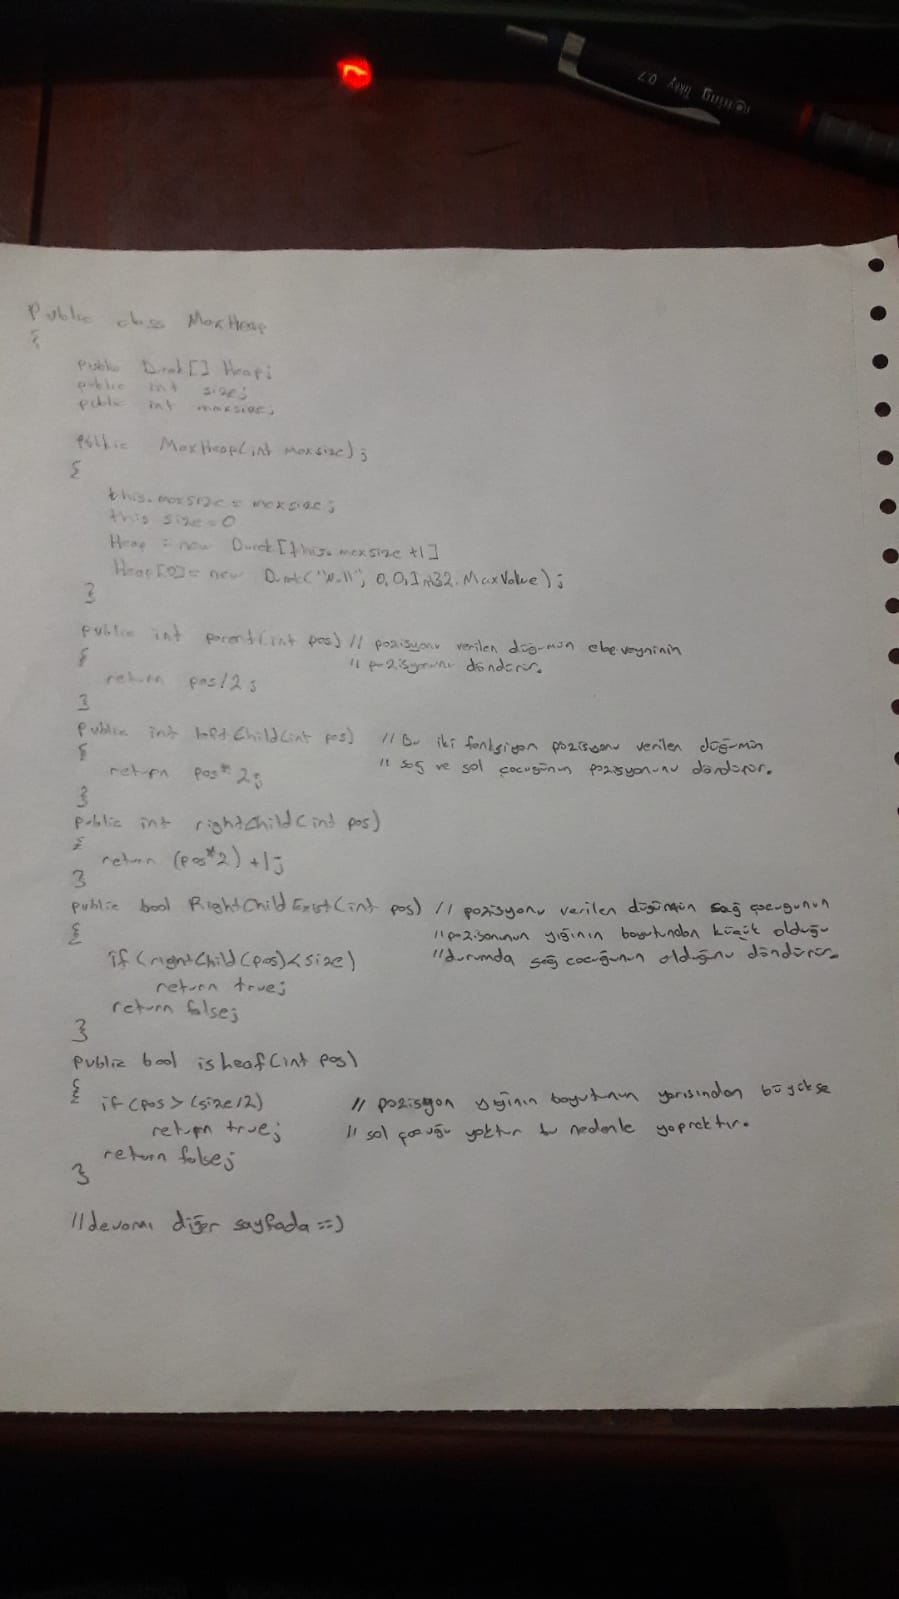 rotring Tikky 0.7
Public class MaxHeap
{
public Durak[] Heap;
public int size;
public int maxsize;
public MaxHeap(int maxsize);
{
this.maxsize = maxsize;
this size=0
Heap = new Durak[this.maxsize +1]
Heap[0]= new Durak("Null", 0,0,Int32.MaxValue);
}
public int parent(int pos) // pozisyonu verilen düğümün ebeveyninin
{ // pozisyonunu döndürür.
return pos/2;
}
public int leftChild(int pos) // Bu iki fonksiyon pozisyonu verilen düğümün
{ // sağ ve sol çocuğunun pozisyonunu döndürür.
return pos*2;
}
public int rightChild(int pos)
{
return (pos*2)+1;
}
public bool RightChildExist(int pos) // pozisyonu verilen düğümün sağ çocugunun
{ //pozisonunun yığının boyutundan küçük olduğu
if(rightChild(pos)<size) //durumda sağ çocuğunun olduğunu döndürür.
return true;
return false;
}
public bool isLeaf(int pos)
{
if(pos>(size/2) // pozisyon yığının boyutunun yarısından büyükse
return true; // sol çocuğu yoktur bu nedenle yapraktır.
return false;
}
//devamı diğer sayfada =)